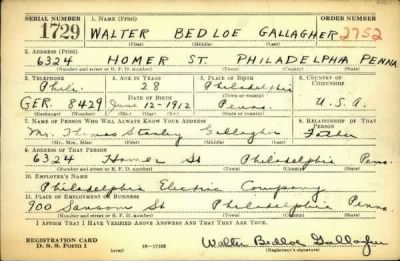 SERIAL NUMBER 1. NAME (Print) ORDER NUMBER
1729 WALTER BEDLOE GALLAGHER 2752
(First) (Middle) (Last)
2. ADDRESS (Print)
6324 HOMER ST. PHILADELPHIA PENNA.
(Number and street or R. F. D. number) (Town) (County) (State)
3. TELEPHONE 4. AGE IN YEARS 5. PLACE OF BIRTH 6. COUNTRY OF CITIZENSHIP
Phila. 28 Philadelphia
DATE OF BIRTH (Town or county)
GER. 8429 June 12-1912 Penna. U.S.A.
(Exchange) (Number) (Mo.) (Day) (Yr.) (State or country)
7. NAME OF PERSON WHO WILL ALWAYS KNOW YOUR ADDRESS 8. RELATIONSHIP OF THAT PERSON
Mr. Thomas Stanley Gallagher Father
(Mr., Mrs., Miss) (First) (Middle) (Last)
9. ADDRESS OF THAT PERSON
6324 Homer St Philadelphia Penna.
(Number and street or R. F. D. number) (Town) (County) (State)
10. EMPLOYER'S NAME
Philadelphia Electric Company
11. PLACE OF EMPLOYMENT OR BUSINESS
900 Sansom St Philadelphia Penna.
(Number and street or R. F. D. number) (Town) (County) (State)
I AFFIRM THAT I HAVE VERIFIED ABOVE ANSWERS AND THAT THEY ARE TRUE.
REGISTRATION CARD
D. S. S. Form 1 (over) Walter Bedloe Gallagher
(Registrant's signature)